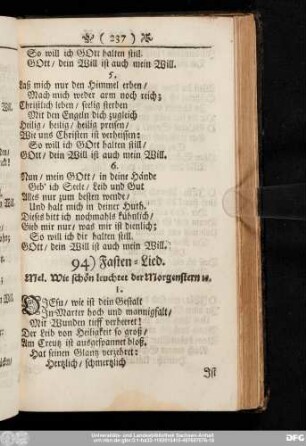 ( 237 )
So will ich GOtt halten still.
GOtt/ dein Will ist auch mein Will.
5.
Laß mich nur den Himmel erben/
Mach mich weder arm noch reich;
Christlich leben/ seelig sterben
Mit den Engeln dich zugleich
Heilig/ heilig/ heilig preisen/
Wie uns Christen ist verheissen:
So will ich GOtt halten still/
GOtt/ dein Will ist auch mein Will.
6.
Nun/ mein GOtt/ in deine Hände
Geb' ich Seele/ Leib und Gut
Alles nur zum besten wende/
Und halt mich in deiner Huth.
Dieses bitt ich nochmahls kühnlich/
Gieb mir nur/ was mir ist dienlich;
So will ich dir halten still.
GOtt/ dein Will ist auch mein Will.
94) Fasten-Lied.
Mel. Wie schön leuchtet der Morgenstern ꝛc.
1.
O JEsu/ wie ist dein Gestalt
In Marter hoch und mannigfalt/
Mit Wunden tieff verhehret!
Der Leib von Heiligkeit so groß/
Am Creutz ist ausgespannet bloß,
Hat seinen Glantz verzehrt:
Hertzlich/ schmertzlich
Ist